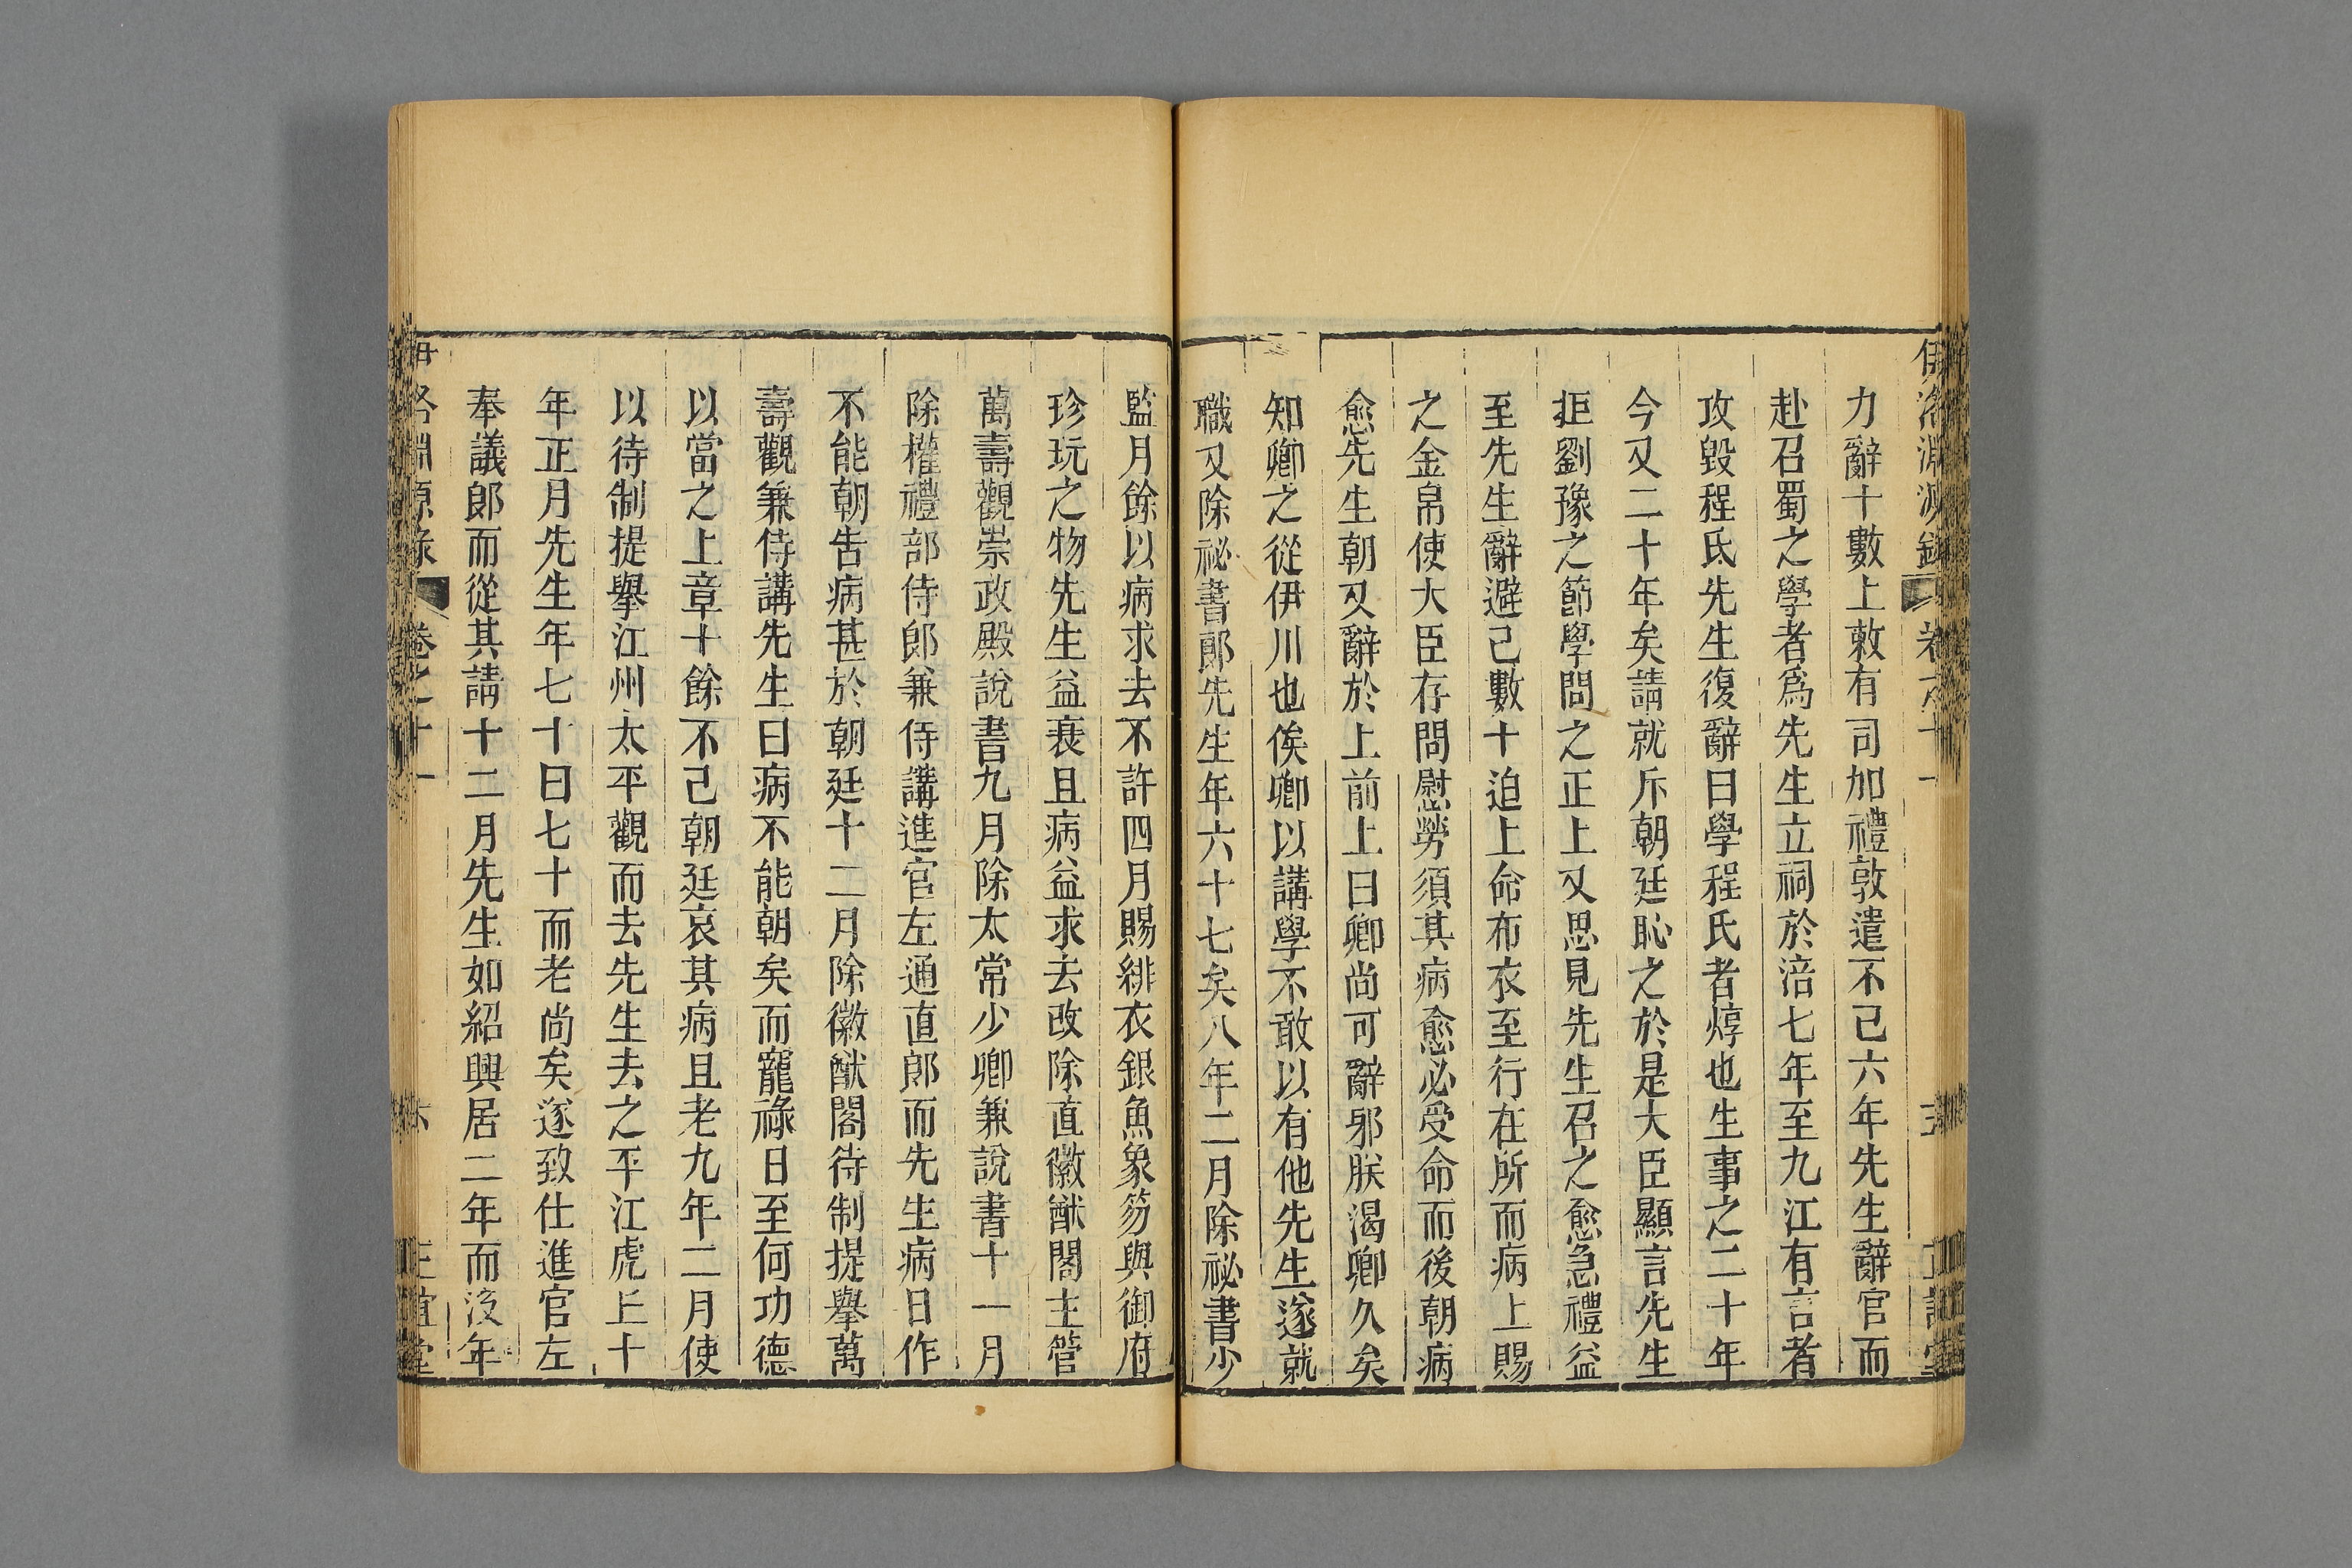 伊洛淵源錄 卷之十一 五 正誼堂
力辭十數上敕有司加禮敦遣不已六年先生辭官而
赴召蜀之學者爲先生立祠於涪七年至九江有言者
攻毀程氏先生復辭曰學程氏者焞也生事之二十年
今又二十年矣請就斥朝廷恥之於是大臣顯言先生
拒劉豫之節學問之正上又思見先生召之愈急禮益
至先生辭避已數十迫上命布衣至行在所而病上賜
之金帛使大臣存問慰勞須其病愈必受命而後朝病
愈先生朝又辭於上前上曰卿尚可辭邪朕渴卿久矣
知卿之從伊川也俟卿以講學不敢以有他先生遂就
職又除祕書郞先生年六十七矣八年二月除祕書少
監月餘以病求去不許四月賜緋衣銀魚象笏與御府
珍玩之物先生益衰且病益求去改除直徽猷閣主管
萬壽觀崇政殿說書九月除太常少卿兼說書十一月
除權禮部侍郞兼侍講進官左通直郞而先生病日作
不能朝告病甚於朝廷十二月除徽猷閣待制提舉萬
壽觀兼侍講先生曰病不能朝矣而寵祿日至何功德
以當之上章十餘不已朝廷哀其病且老九年二月使
以待制提舉江州太平觀而去先生去之平江虎丘十
年正月先生年七十曰七十而老尚矣遂致仕進官左
奉議郞而從其請十二月先生如紹興居二年而沒年
伊洛淵源錄 卷之十一 六 正誼堂